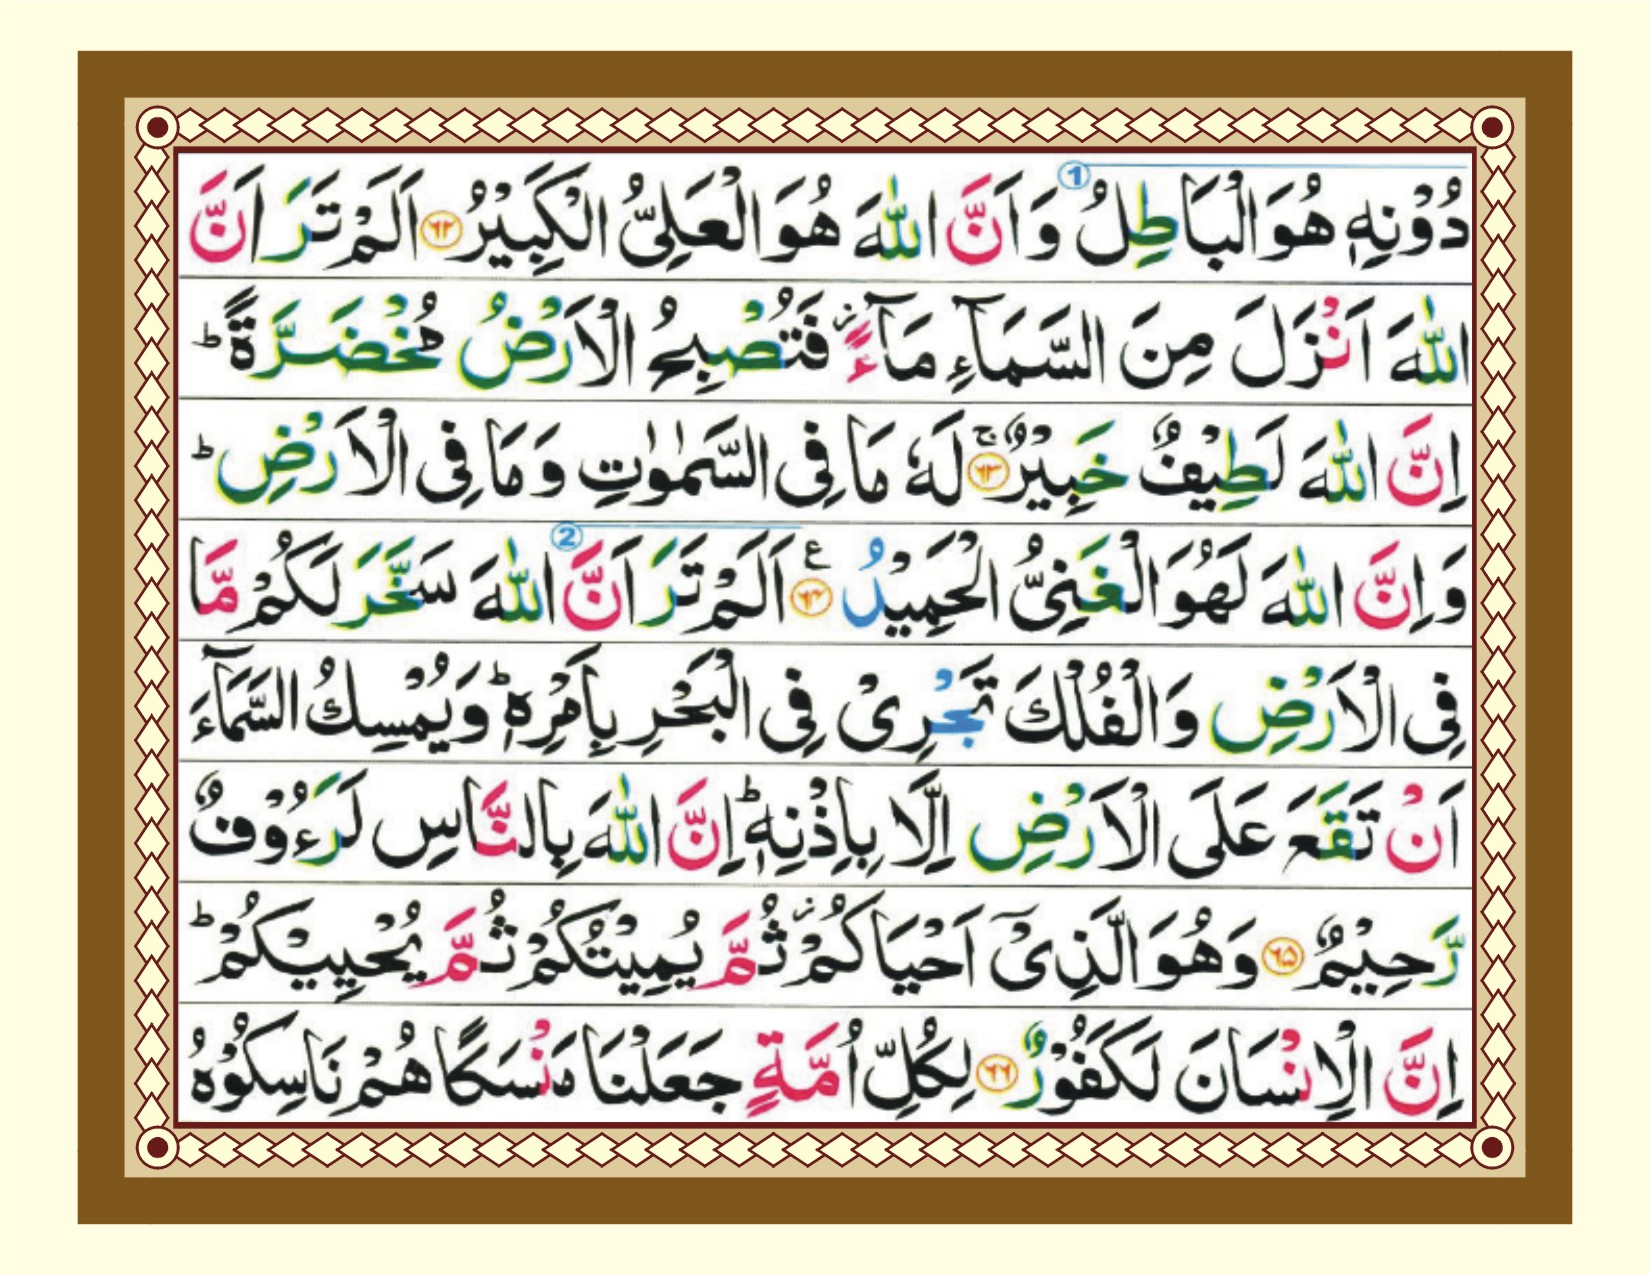 دُوْنِهٖ هُوَ الْبَاطِلُ ① وَاَنَّ اللّٰهَ هُوَ الْعَلِیُّ الْكَبِیْرُ ﴿۶۲﴾ اَلَمْ تَرَ اَنَّ
اللّٰهَ اَنْزَلَ مِنَ السَّمَآءِ مَآءً ز فَتُصْبِحُ الْاَرْضُ مُخْضَرَّةً ؕ
اِنَّ اللّٰهَ لَطِیْفٌ خَبِیْرٌ ۚ ﴿۶۳﴾ لَهٗ مَا فِی السَّمٰوٰتِ وَمَا فِی الْاَرْضِ ؕ
وَاِنَّ اللّٰهَ لَهُوَ الْغَنِیُّ الْحَمِیْدُ ﴿۶۴﴾ ع اَلَمْ تَرَ اَنَّ ② اللّٰهَ سَخَّرَ لَكُمْ مَّا
فِی الْاَرْضِ وَالْفُلْكَ تَجْرِیْ فِی الْبَحْرِ بِاَمْرِهٖ ؕ وَیُمْسِكُ السَّمَآءَ
اَنْ تَقَعَ عَلَی الْاَرْضِ اِلَّا بِاِذْنِهٖ ؕ اِنَّ اللّٰهَ بِالنَّاسِ لَرَءُوْفٌ
رَّحِیْمٌ ﴿۶۵﴾ وَهُوَ الَّذِیْۤ اَحْیَاكُمْ ز ثُمَّ یُمِیْتُكُمْ ثُمَّ یُحْیِیْكُمْ ؕ
اِنَّ الْاِنْسَانَ لَكَفُوْرٌ ﴿۶۶﴾ لِكُلِّ اُمَّةٍ جَعَلْنَا مَنْسَكًا هُمْ نَاسِكُوْهُ